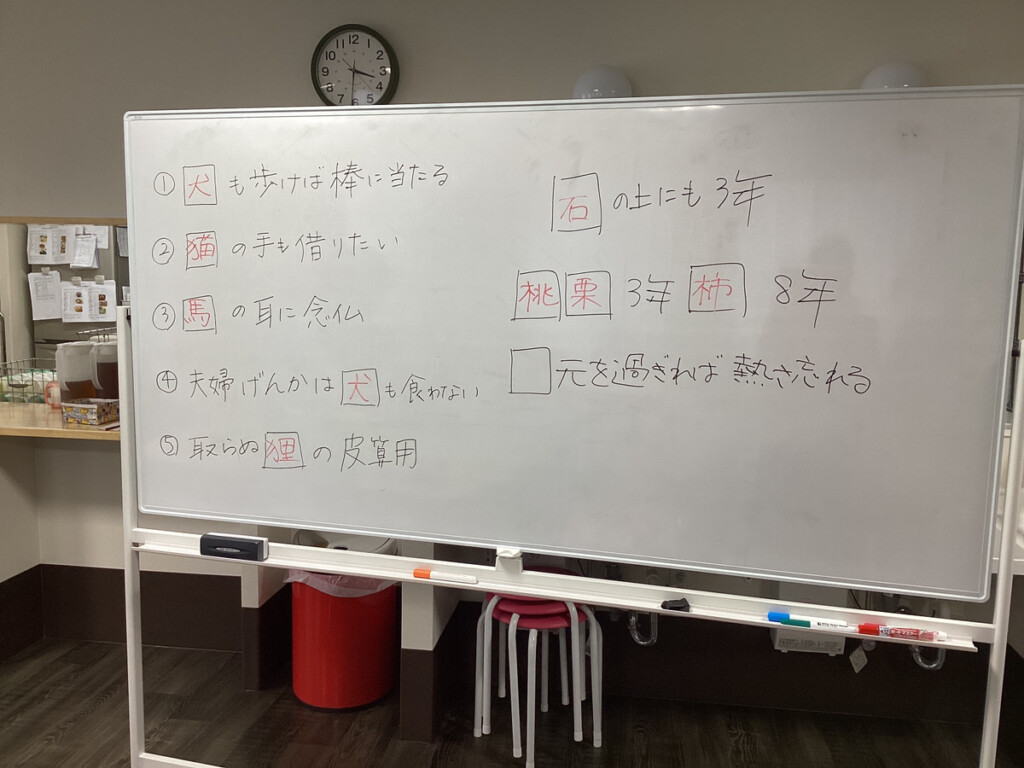 ① 犬も歩けば棒に当たる
② 猫の手も借りたい
③ 馬の耳に念仏
④ 夫婦げんかは犬も食わない
⑤ 取らぬ狸の皮算用
石の上にも3年
桃栗3年柿8年
□元を過ぎれば熱さ忘れる
12
1
2
3
4
5
6
7
8
9
10
11